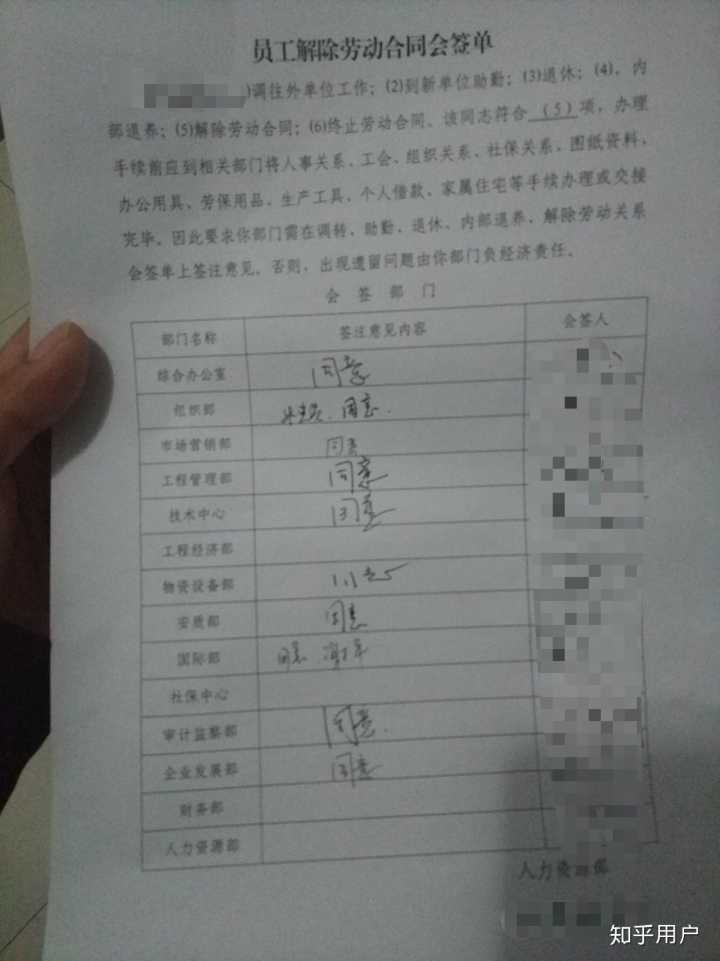 员工解除劳动合同会签单
)调往外单位工作；(2)到新单位助勤；(3)退休；(4)、内
部退养；(5)解除劳动合同；(6)终止劳动合同、该同志符合（5）项，办理
手续前应到相关部门将人事关系、工会、组织关系、社保关系、图纸资料、
办公用具、劳保用品、生产工具、个人借款、家属住宅等手续办理或交接
完毕。因此要求你部门需在调转、助勤、退休、内部退养、解除劳动关系
会签单上签注意见。否则，出现遗留问题由你部门负经济责任。
会签部门
部门名称 签注意见内容 会签人
综合办公室 同意
组织部 同意.
市场营销部 同意
工程管理部 同意
技术中心 同意
工程经济部
物资设备部
安质部 同意
国际部 同意
社保中心
审计监察部 同意.
企业发展部 同意
财务部
人力资源部
人力资源部
知乎用户